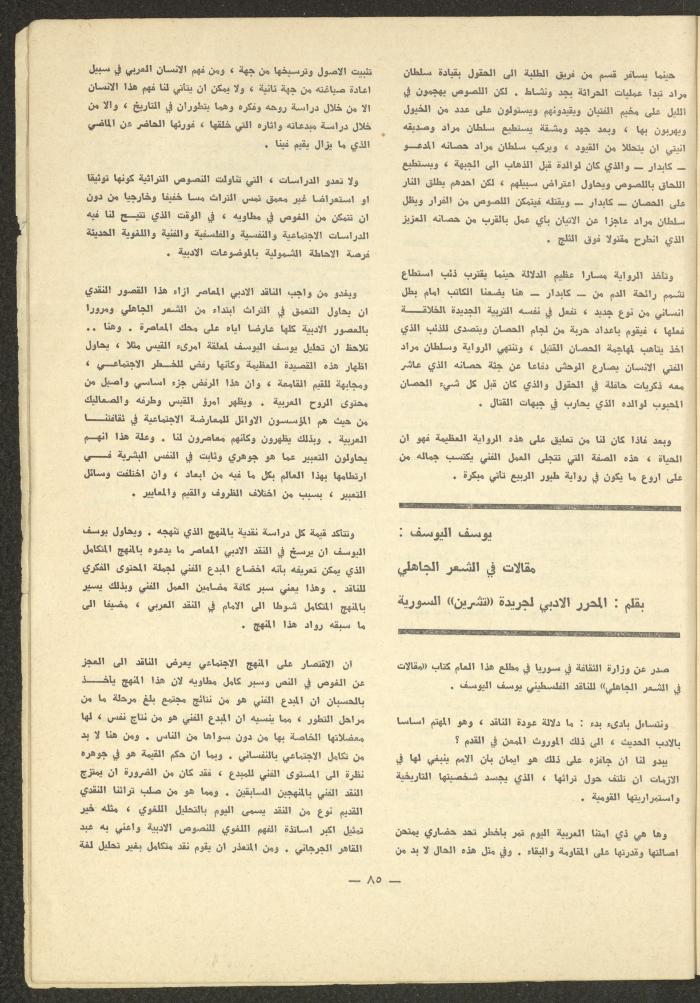 حينما يسافر قسم من فريق الطلبة الى الحقول بقيادة سلطان
مراد تبدا عمليات الحراثة بجد ونشاط . لكن اللصوص يهجمون في
الليل على مخيم الفتيان ويقيدونهم ويستولون على عدد من الخيول
ويهربون بها ، وبعد جهد ومشقة يستطيع سلطان مراد وصديقه
انيتي ان يتحللا من القيود ، ويركب سلطان مراد حصانه المدعو
ــ كابدار ــ والذي كان لوالدة قبل الذهاب الى الجبهة ، ويستطيع
اللحاق باللصوص ويحاول اعتراض سبيلهم ، لكن احدهم يطلق النار
على الحصان ــ كابدار ــ ويقتله فيتمكن اللصوص من الفرار ويظل
سلطان مراد عاجزا عن الاتيان بأي عمل بالقرب من حصانه العزيز
الذي انطرح مقتولا فوق الثلج .
وتأخذ الرواية مسارا عظيم الدلالة حينما يقترب ذئب استطاع
تشمم رائحة الدم من ــ كابدار ــ هنا يضعنا الكاتب امام بطل
انساني من نوع جديد ، تفعل في نفسه التربية الجديدة الخلاقــة
فعلها ، فيقوم باعداد حربة من لجام الحصان ويتصدى للذئب الذي
اخذ يتاهب لمهاجمة الحصان القتيل ، وتنتهي الرواية وسلطان مراد
الفتي الانسان يصارع الوحش دفاعا عن جثة حصانه الذي عاشر
معه ذكريات حافلة في الحقول والذي كان قبل كل شيء الحصان
المحبوب لوالده الذي يحارب في جبهات القتال .
وبعد فاذا كان لنا من تعليق على هذه الرواية العظيمة فهو ان
الحياة ، هذه الصفة التي تتجلى العمل الفني يكتسب جماله من
على اروع ما يكون في رواية طيور الربيع تأتي مبكرة .
يوسف اليوسف :
مقالات في الشعر الجاهلي
بقلم : المحرر الادبي لجريدة «تشرين» السورية
صدر عن وزارة الثقافة في سوريا في مطلع هذا العام كتاب «مقالات
في الشعر الجاهلي» للناقد الفلسطيني يوسف اليوسف .
ونتساءل بادىء بدء : ما دلالة عودة الناقد ، وهو المهتم اساسا
بالادب الحديث ، الى ذلك الموروث الممعن في القدم ؟
يبدو لنا ان حافزه على ذلك هو ايمان بأن الامم ينبغي لها في
الازمات ان تلتف حول تراثها ، الذي يجسد شخصيتها التاريخية
واستمراريتها القومية .
وها هي ذي امتنا العربية اليوم تمر بأخطر تحد حضاري يمتحن
اصالتها وقدرتها على المقاومة والبقاء . وفي مثل هذه الحال لا بد من
تثبيت الاصول وترسيخها من جهة ، ومن فهم الانسان العربي في سبيل
اعادة صياغته من جهة ثانية ، ولا يمكن ان يتأتى لنا فهم هذا الانسان
الا من خلال دراسة روحه وفكره وهما يتطوران في التاريخ ، والا من
خلال دراسة مبدعاته واثاره التي خلقها ، فورثها الحاضر عن الماضي
الذي ما يزال يقيم فينا .
ولا تعدو الدراسات ، التي تناولت النصوص التراثية كونها توثيقا
او استعراضا غير معمق تمس التراث مسا خفيفا وخارجيا من دون
ان تتمكن من الغوص في مطاويه ، في الوقت الذي تتيــح لنا فيه
الدراسات الاجتماعية والنفسية والفلسفية والفنية واللغوية الحديثة
فرصة الاحاطة الشمولية بالموضوعات الادبية .
ويغدو من واجب الناقد الادبي المعاصر ازاء هذا القصور النقدي
ان يحاول التعمق في التراث ابتداء من الشعر الجاهلي ومرورا
بالعصور الادبية كلها عارضا اياه على محك المعاصرة . وهنا ..
نلاحظ ان تحليل يوسف اليوسف لمعلقة امرىء القيس مثلا ، يحاول
اظهار هذه القصيدة العظيمة وكأنها رفض للخطر الاجتماعــي ،
ومجابهة للقيم القامعة ، وان هذا الرفض جزء اساسي واصيل من
محتوى الروح العربية . ويظهر امرؤ القيس وطرفه والصعاليك
من حيث هم المؤسسون الاوائل للمعارضة الاجتماعية في ثقافتنـــا
العربية . وبذلك يظهرون وكأنهم معاصرون لنا . وعلة هذا انهــم
يحاولون التعبير عما هو جوهري وثابت في النفس البشرية فـــي
ارتطامها بهذا العالم بكل ما فيه من ابعاد ، وان اختلفت وسائل
التعبير ، بسبب من اختلاف الظروف والقيم والمعايير .
وتتأكد قيمة كل دراسة نقدية بالمنهج الذي تنهجه . ويحاول يوسف
اليوسف ان يرسخ في النقد الادبي المعاصر ما يدعوه بالمنهج المتكامل
الذي يمكن تعريفه بأنه اخضاع المبدع الفني لجملة المحتوى الفكري
للناقد . وهذا يعني سبر كافة مضامين العمل الفني وبذلك يسير
بالمنهج المتكامل شوطا الى الامام في النقد العربي ، مضيفا الى
ما سبقه رواد هذا المنهج .
ان الاقتصار على المنهج الاجتماعي يعرض الناقد الى العجز
عن الغوص في النص وسبر كامل مطاويه لان هذا المنهج ياخــذ
بالحسبان ان المبدع الفني هو من نتائج مجتمع بلغ مرحلة ما من
مراحل التطور ، مما ينسيه ان المبدع الفني هو من نتاج نفس ، لها
معضلاتها الخاصة بها من دون سواها من الناس . ومن هنا لا بد
من تكامل الاجتماعي بالنفساني . وبما ان حكم القيمة هو في جوهره
نظرة الى المستوى الفني للمبدع ، فقد كان من الضرورة ان يمتزج
النقد الفني بالمنهجين السابقين . ومما هو من صلب تراثنا النقدي
القديم نوع من النقد يسمى اليوم بالتحليل اللغوي ، مثله خير
تمثيل اكبر اساتذة الفهم اللغوي للنصوص الادبية واعني به عبد
القاهر الجرجاني . ومن المتعذر ان يقوم نقد متكامل بغير تحليل لغة
— ٨٥ —